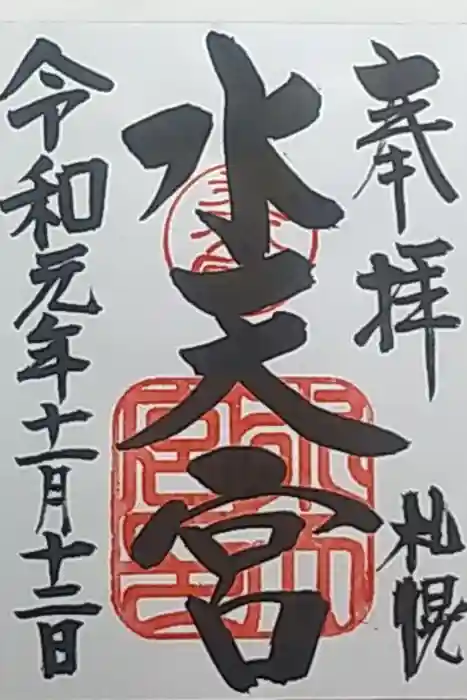 奉拝
札幌
水天宮
令和元年十一月十二日